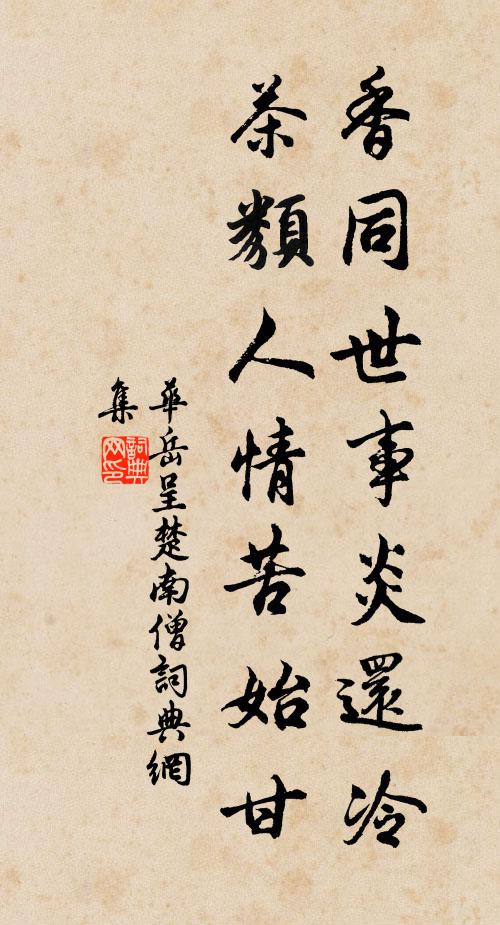 香同世事炎還冷
茶類人情苦始甘
華岳呈楚南僧詞典網
集
詞典
网印